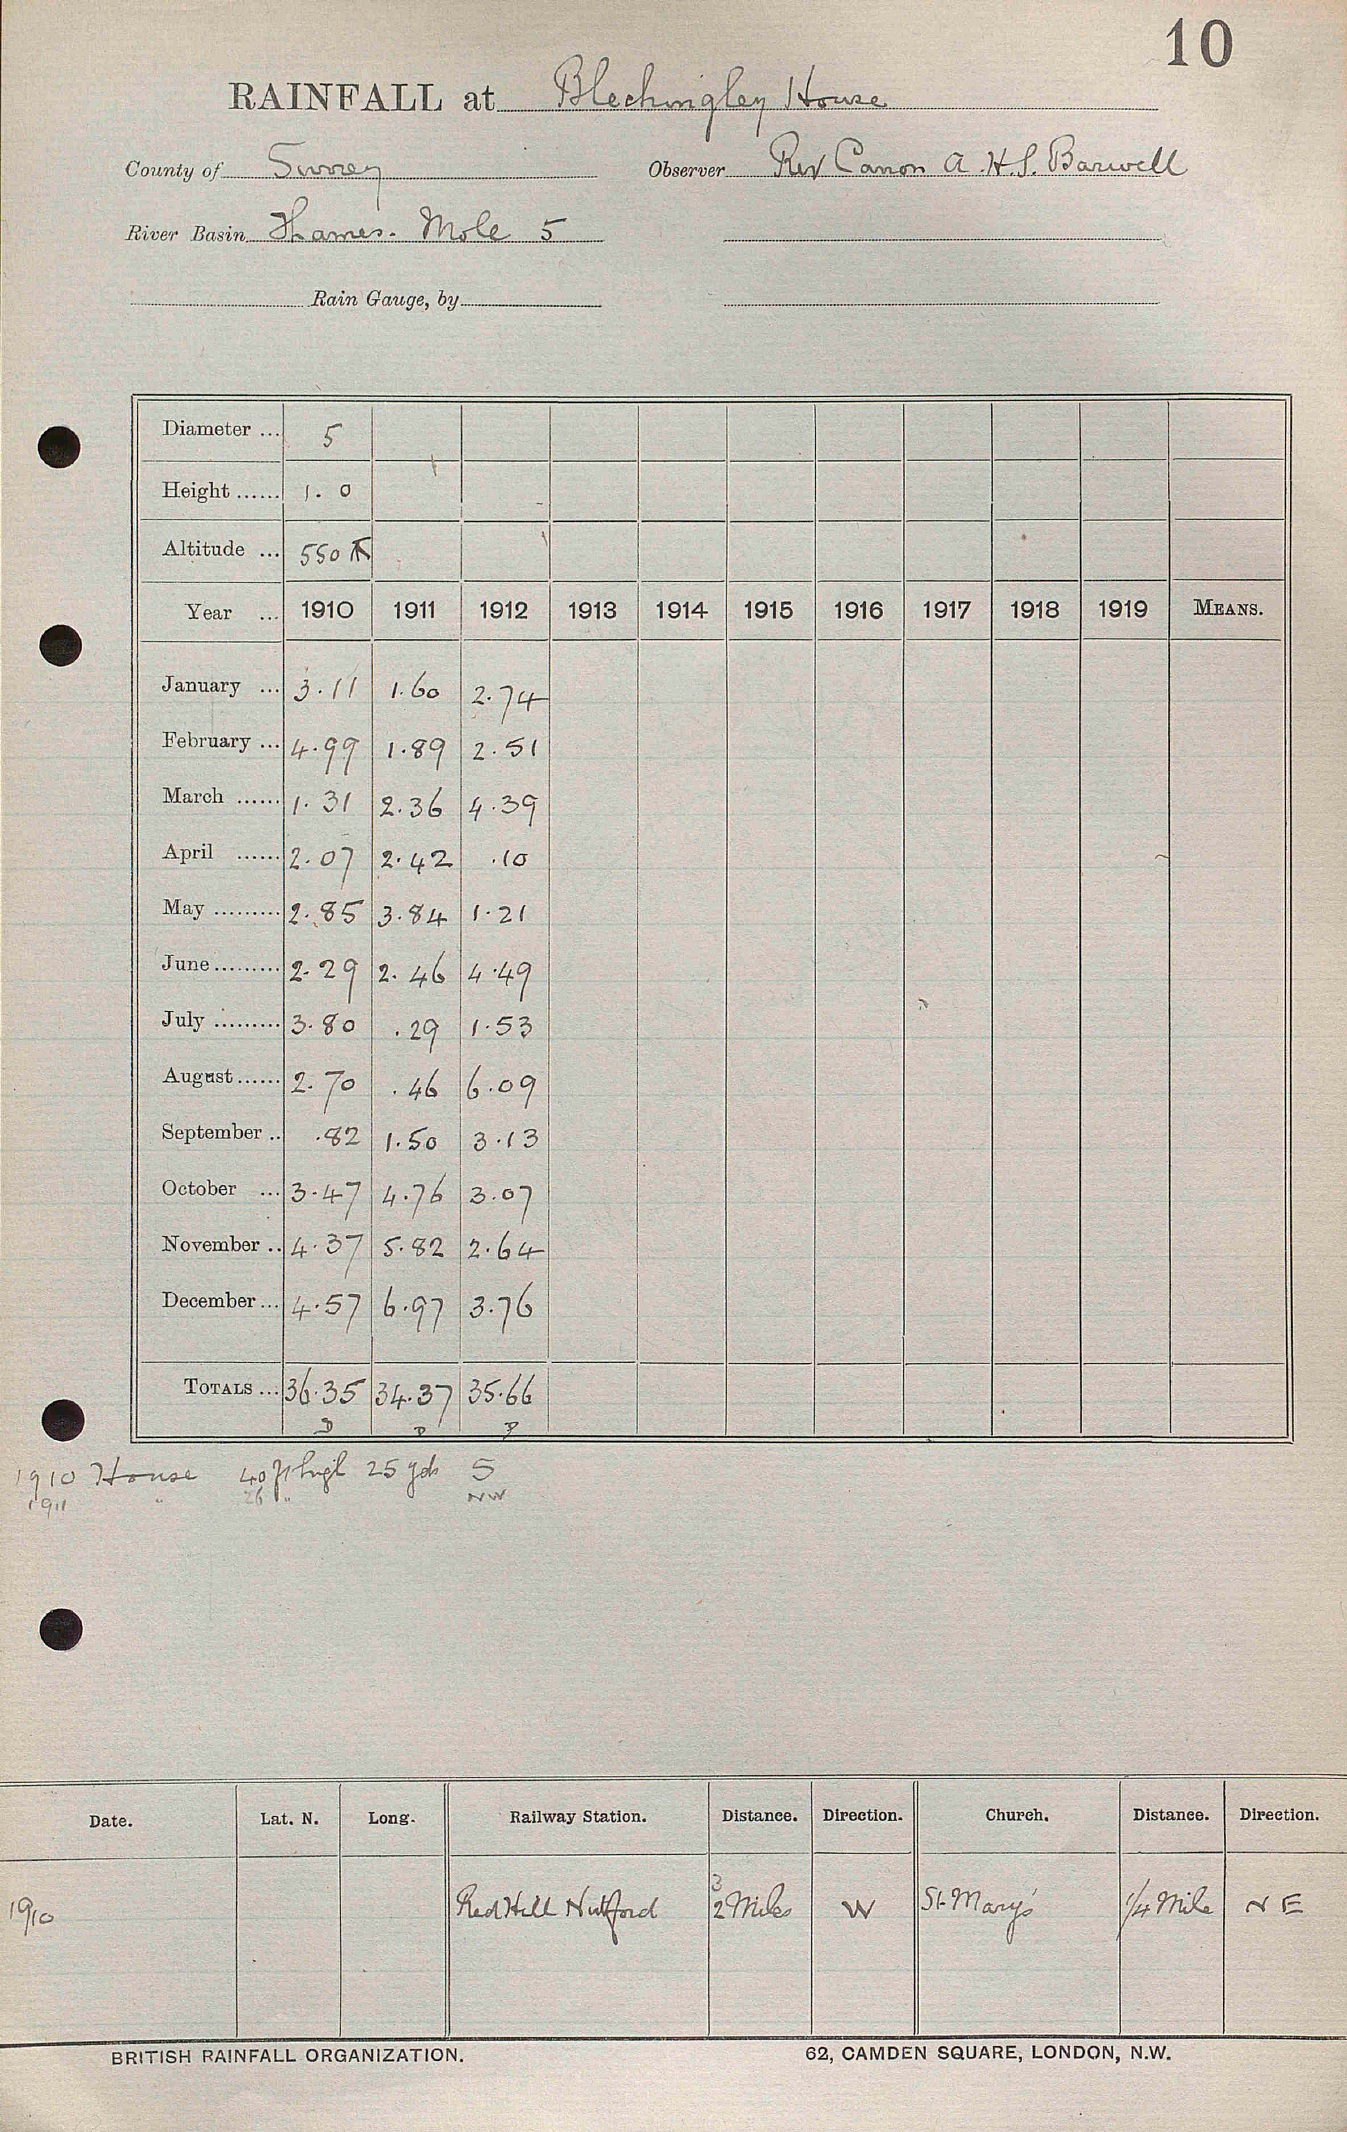 10
RAINFALL at Blechingley House
County of Surrey Observer Rev Canon A. H. S. Barwell
River Basin Thames. Mole 5
Rain Gauge, by
Diameter ... 5
Height ...... 1. 0
Altitude ... 550
Year ... 1910 1911 1912 1913 1914 1915 1916 1917 1918 1919 MEANS.
January ... 3.11 1.60 2.74
February ... 4.99 1.89 2.51
March ...... 1.31 2.36 4.39
April ...... 2.07 2.42 .10
May ......... 2.85 3.84 1.21
June ......... 2.29 2.46 4.49
July ......... 3.80 .29 1.53
August ...... 2.70 .46 6.09
September .. .82 1.50 3.13
October ... 3.47 4.76 3.07
November .. 4.37 5.82 2.64
December ... 4.57 6.97 3.76
TOTALS ... 36.35 34.37 35.66
1910 House 40 ft high 25 yds S
1911 " 26 " NW
Date. Lat. N. Long. Railway Station. Distance. Direction. Church. Distance. Direction.
3
1910 Red Hill Nutford 2 Miles W St. Mary's 1/4 Mile N E
BRITISH RAINFALL ORGANIZATION. 62, CAMDEN SQUARE, LONDON, N.W.